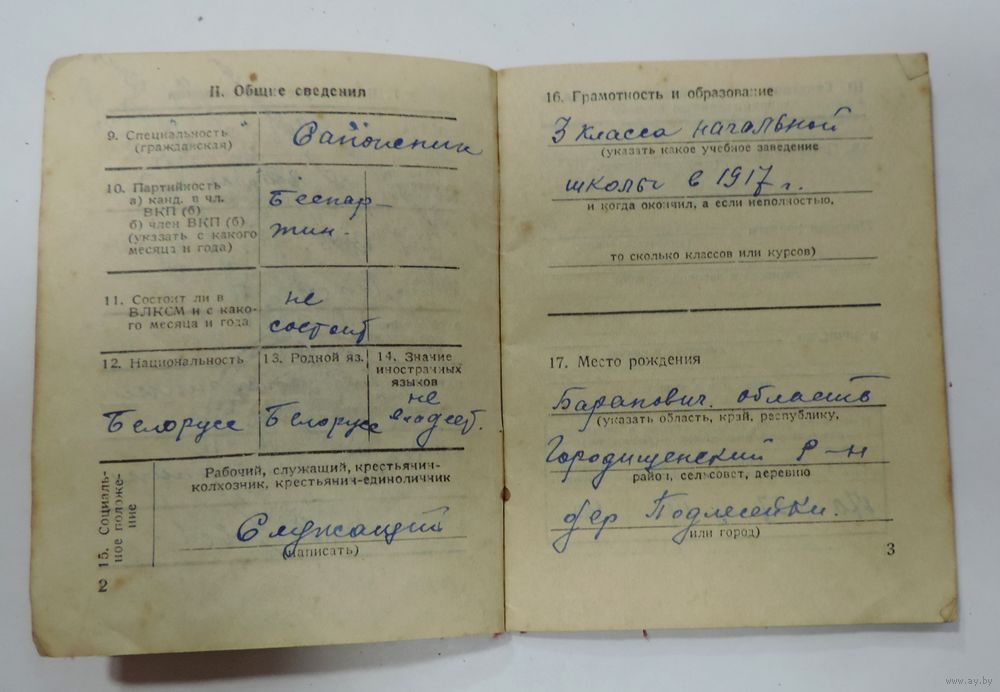 II. Общие сведения
9. Специальность
(гражданская)
10. Партийность
а) канд. в чл.
ВКП (б)
б) член ВКП (б)
(указать с какого
месяца и года)
Беспар-
тин.
11. Состоит ли в
ВЛКСМ и с како-
го месяца и года
не
состоит
12. Национальность
Белорусс
13. Родной яз.
Белорусс
14. Знание
иностранных
языков
не
владеет.
15. Социаль-
ное положе-
ние
Рабочий, служащий, крестьянин-
колхозник, крестьянин-единоличник
Служащий
(написать)
2
16. Грамотность и образование
3 класса начальной
(указать какое учебное заведение
школы в 1917 г.
и когда окончил, а если неполностью,
то сколько классов или курсов)
17. Место рождения
Баранович. область
(указать область, край, республику,
Городищенский р-н
район, сельсовет, деревню
дер Подлесейки.
или город)
3
www.ay.by